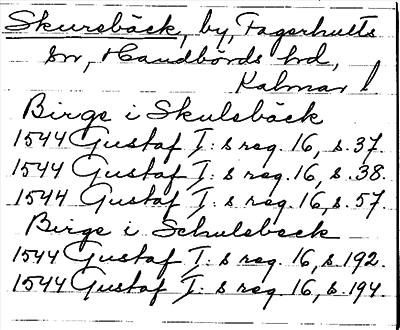 Skursbäck, by, Fagerhults
sn, Handbörds hd,
Kalmar l
Birge i Skulsbäck
1544 Gustaf I: s reg. 16, s. 37.
1544 Gustaf I: s reg. 16, s. 38.
1544 Gustaf I: s reg. 16, s. 57.
Birge i Schulsbeck
1544 Gustaf I: s reg. 16, s. 192.
1544 Gustaf I: s reg. 16, s. 194.